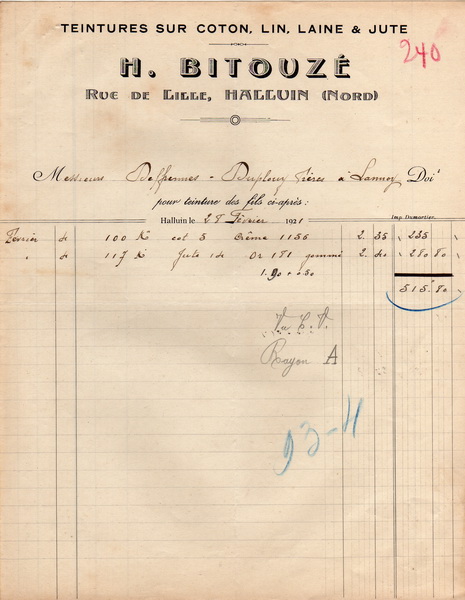 TEINTURES SUR COTON, LIN, LAINE & JUTE
240
H. BITOUZÉ
RUE DE LILLE, HALLUIN (NORD)
Messieurs Deffrennes - Duplouy frères à Lannoy Doit
pour teinture des fils ci-après :
Imp. Dumortier.
Halluin le 28 Février 1921
Février 100 K cot 3 Crème 1156 2. 35 235
117 K Jute 1d Or 181 gommé 2. 40 280 80
1.90 + 0.50
515.80
Rayon A
93-11